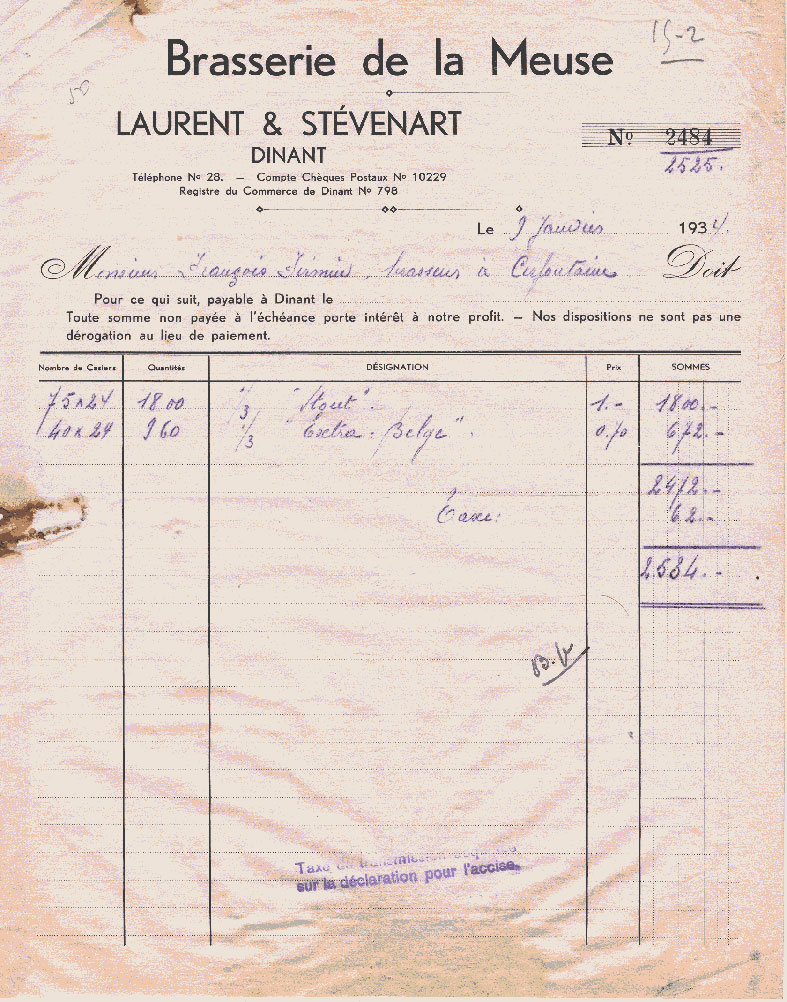 15-2
Brasserie de la Meuse
50
LAURENT & STÉVENART
DINANT
Nº 2484
2525.
Téléphone Nº 28. — Compte Chèques Postaux Nº 10229
Registre du Commerce de Dinant Nº 798
Le 9 Janvier 1934.
Monsieur François Firmin, brasseur à Cerfontaine Doit
Pour ce qui suit, payable à Dinant le
Toute somme non payée à l'échéance porte intérêt à notre profit. — Nos dispositions ne sont pas une
dérogation au lieu de paiement.
Nombre de Casiers Quantités DÉSIGNATION Prix SOMMES
75x24 1800 1/3 "Stout". 1.- 1800.-
40x24 960 1/3 "Extra-Belge". 0.70 672.-
2472.-
Taxe: 62.-
2534.-
Taxe de transmission
sur la déclaration pour l'accise.